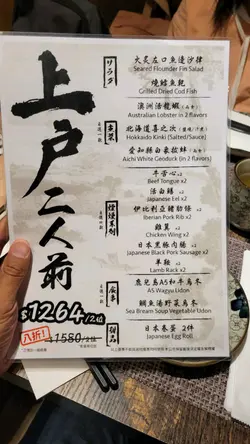 上戸二人前
$1264/2位
八折!
$1580/2位
サラダ
火炙左口魚邊沙律
Seared Flounder Fin Salad
燒鱈魚乾
Grilled Dried Cod Fish
主菜
澳洲活龍蝦
Australian Lobster in 2 flavors
北海道喜之次
Hokkaido Kinki (Salted/Sauce)
愛知縣白象拔蚌
Aichi White Geoduck (in 2 flavors)
牛舌心 x2
Beef Tongue x2
活白鱔 x2
Japanese Eel x2
伊比利亞豬肋條 x2
Iberian Pork Rib x2
雞翼 x2
Chicken Wing x2
日本黑豚肉腸 x2
Japanese Black Pork Sausage x2
羊鞍 x2
Lamb Rack x2
食事
鹿兒島A5和牛烏冬
A5 Wagyu Udon
鯛魚湯野菜烏冬
Sea Bream Soup Vegetable Udon
甜品
日本卷蛋 2件
Japanese Egg Roll